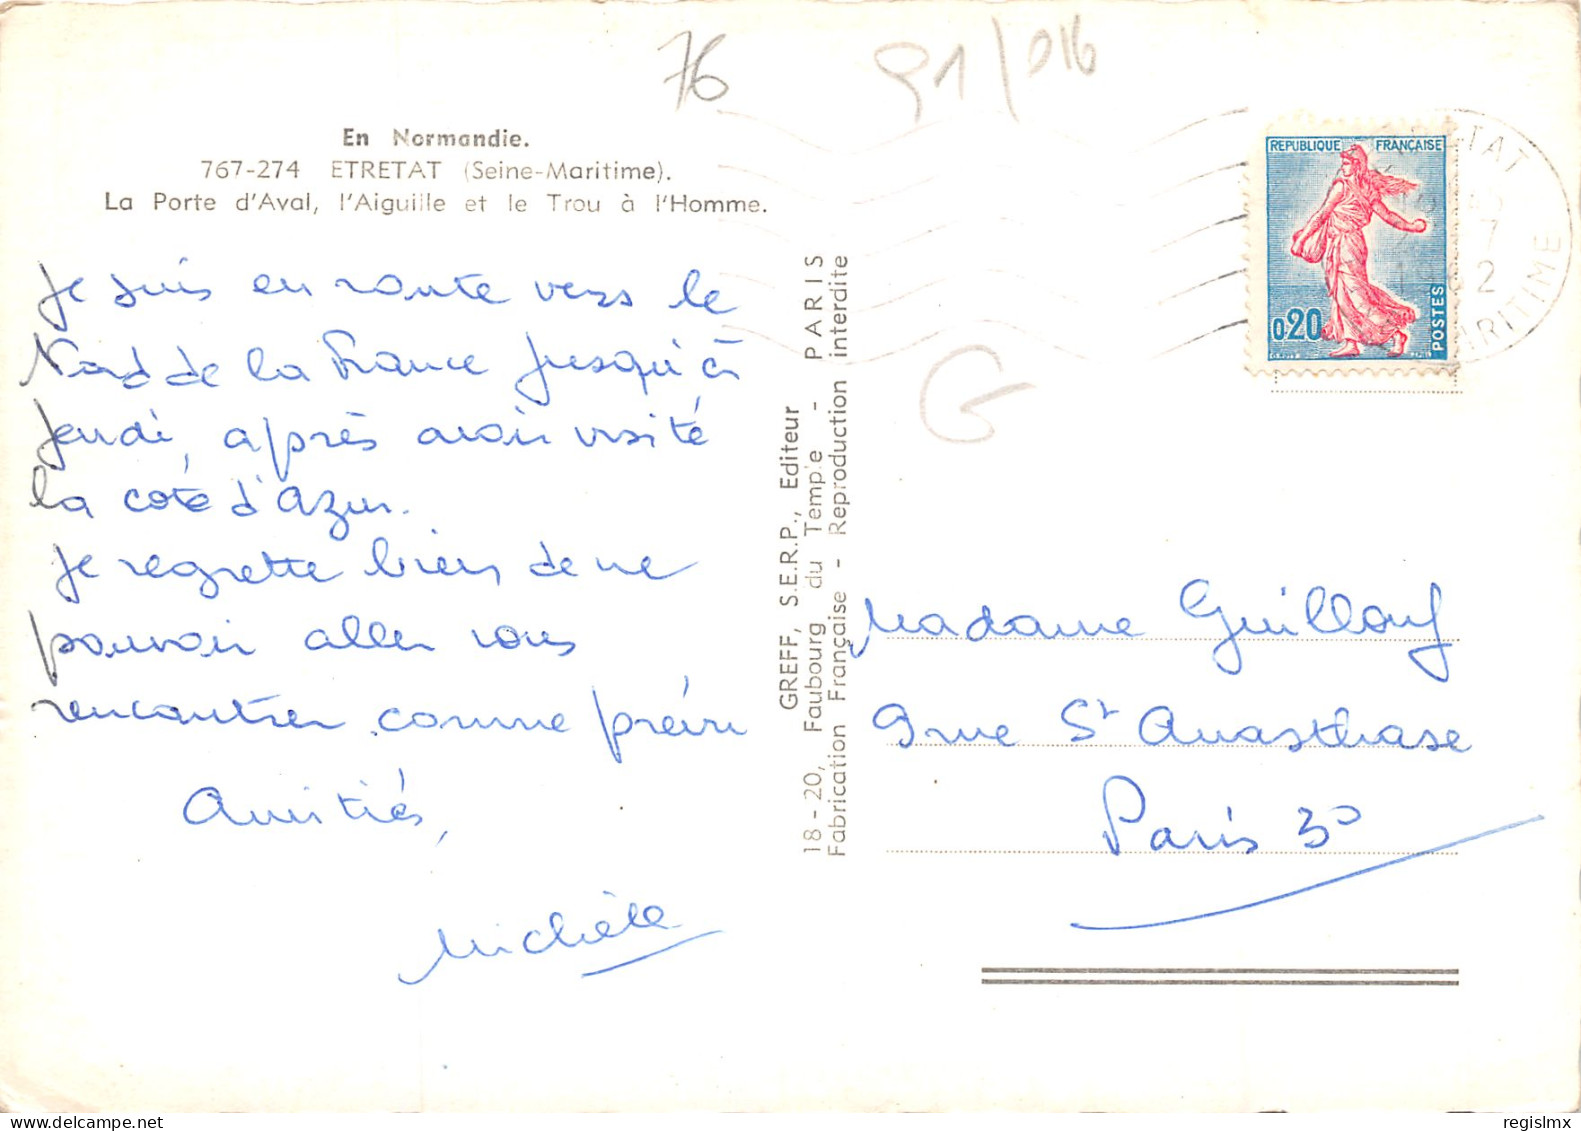 76
91/016
En Normandie.
767-274 ETRETAT (Seine-Maritime).
La Porte d'Aval, l'Aiguille et le Trou à l'Homme.
Je suis en route vers le
Nord de la France jusqu'à
Jeudi, après avoir visité
la cote d'Azur.
Je regrette bien de ne
pouvoir aller vous
rencontrer comme prévu
Amitiés,
Michèle
GREFF, S.E.R.P., Editeur
18-20, Faubourg du Temple - PARIS
Fabrication Française - Reproduction interdite
G
REPUBLIQUE FRANÇAISE
0.20
POSTES
TAT
7
2
RITIME
Madame Guillouf
9 rue St Anasthase
Paris 3°
regislmx